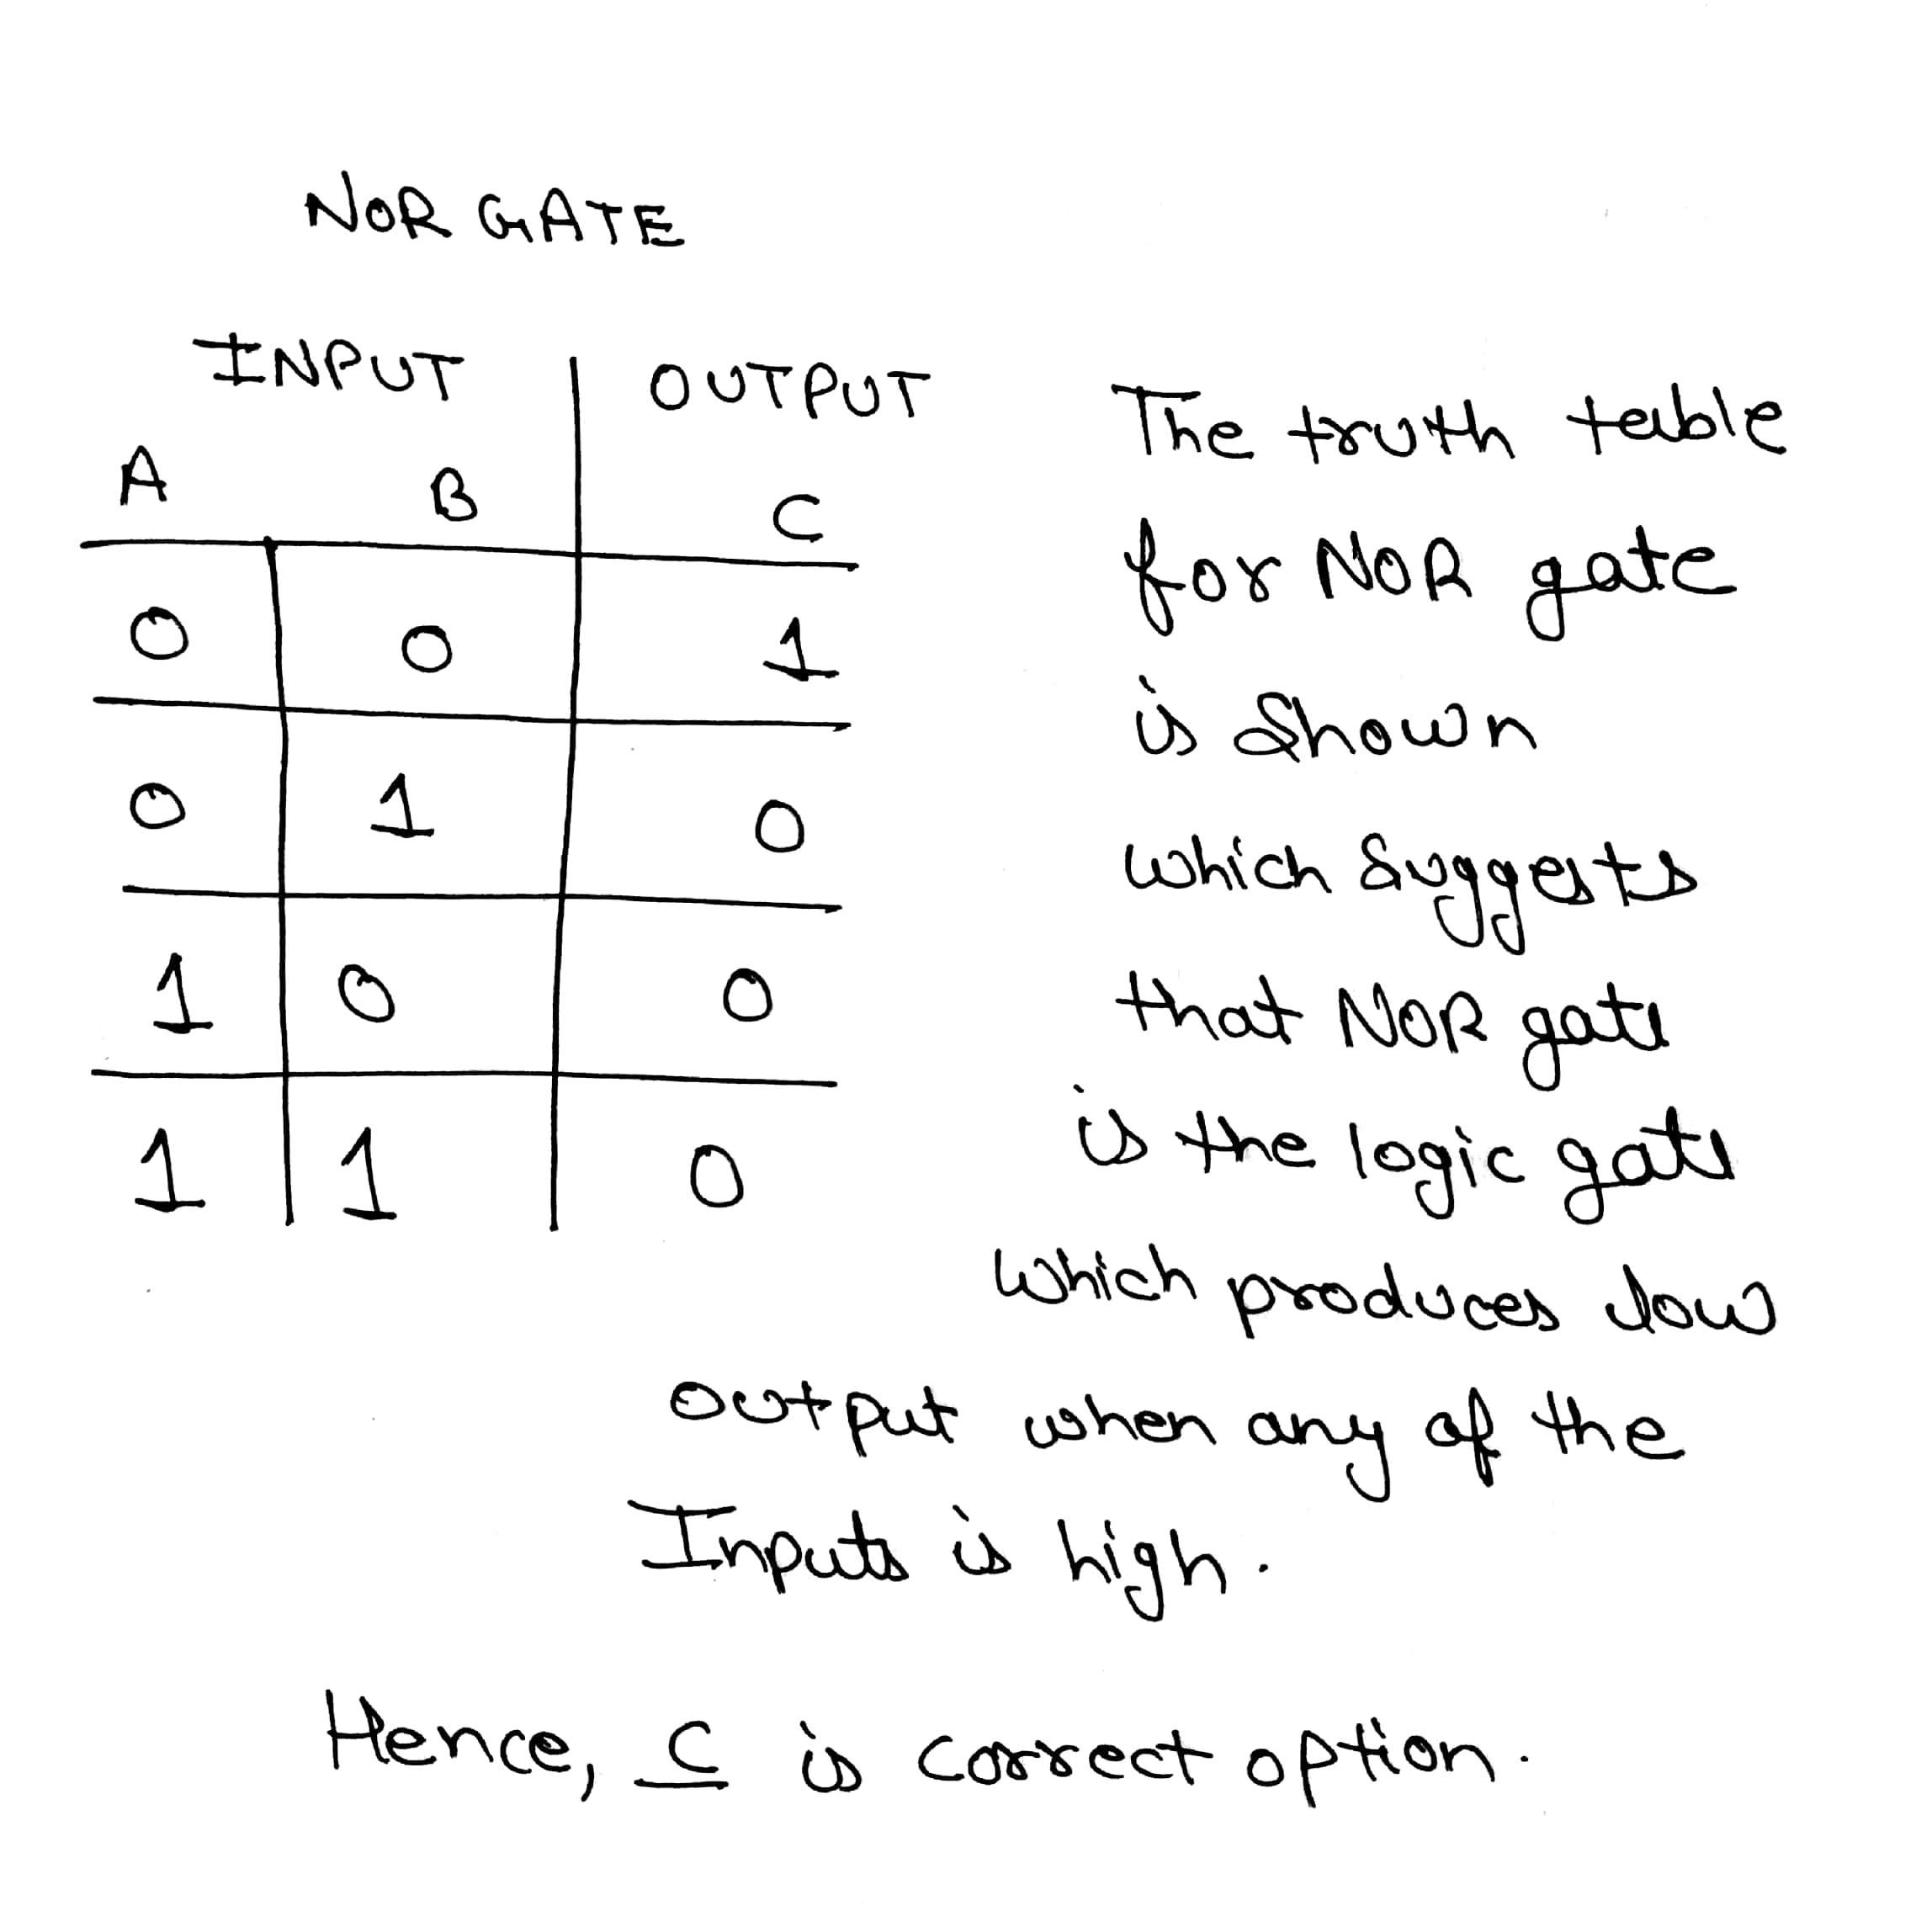 NOR GATE
INPUT OUTPUT
A B C
0 0 1
0 1 0
1 0 0
1 1 0
The truth table
for NOR gate
is shown
which suggests
that NOR gate
is the logic gate
which produces low
output when any of the
Inputs is high.
Hence, C is correct option.